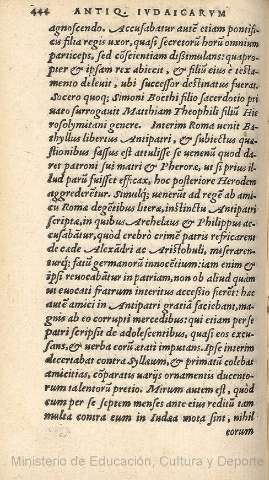 444 ANTIQ. IVDAICARVM
agnoscendo. Accusabatur autē etiam pontifi-
cis filia regis uxor, quasi secretorū horū omnium
particeps, sed cōscientiam dissimulans: quapro-
pter & ipsam rex abiecit, & filiū eius è testa-
mento deleuit, ubi successor destinatus fuerat.
Socero quoq; Simoni Boethi filio sacerdotio pri
uato surrogauit Matthiam Theophili filiū Hie
rosolymitani genere. Interim Roma uenit Ba-
thyllus libertus Antipatri, & subiectus quæ-
stionibus fassus est attulisse se uenenū quod da-
ret patroni sui matri & Pheroræ, ut si prius il-
lud parū fuisset efficax, hoc posteriore Herodem
aggrederētur. Simulq; uenerūt ad regē ab ami-
cis Roma degētibus literæ, instinctu Antipatri
scriptæ, in quibus Archelaus & Philippus ac-
cusabātur, quòd crebrò crimē patris refricarent
de cæde Alexādri ac Aristobuli, miserarent-
urq; fatū germanorū innocētium: iam enim &
ipsi reuocabātur in patriam, non ob aliud quàm
ut euocati fratrum interitus accessio fierēt: hæc
autē amici in Antipatri gratiā faciebant, ma-
gnis ab eo corrupti mercedibus: qui etiam perse
patri scripsit de adolescentibus, quasi eos excu-
sans, & uerba eorū ætati imputans. Ipse interim
decertabat contra Syllæum, & primatū colebat
amicitias, cōparatis uarijs ornamentis ducento-
rum talentorū pretio. Mirum autem est, quòd
cum per se septem menses ante eius reditū tam
multa contra eum in Iudæa mota sint, nihil
eorum
Ministerio de Educación, Cultura y Deporte